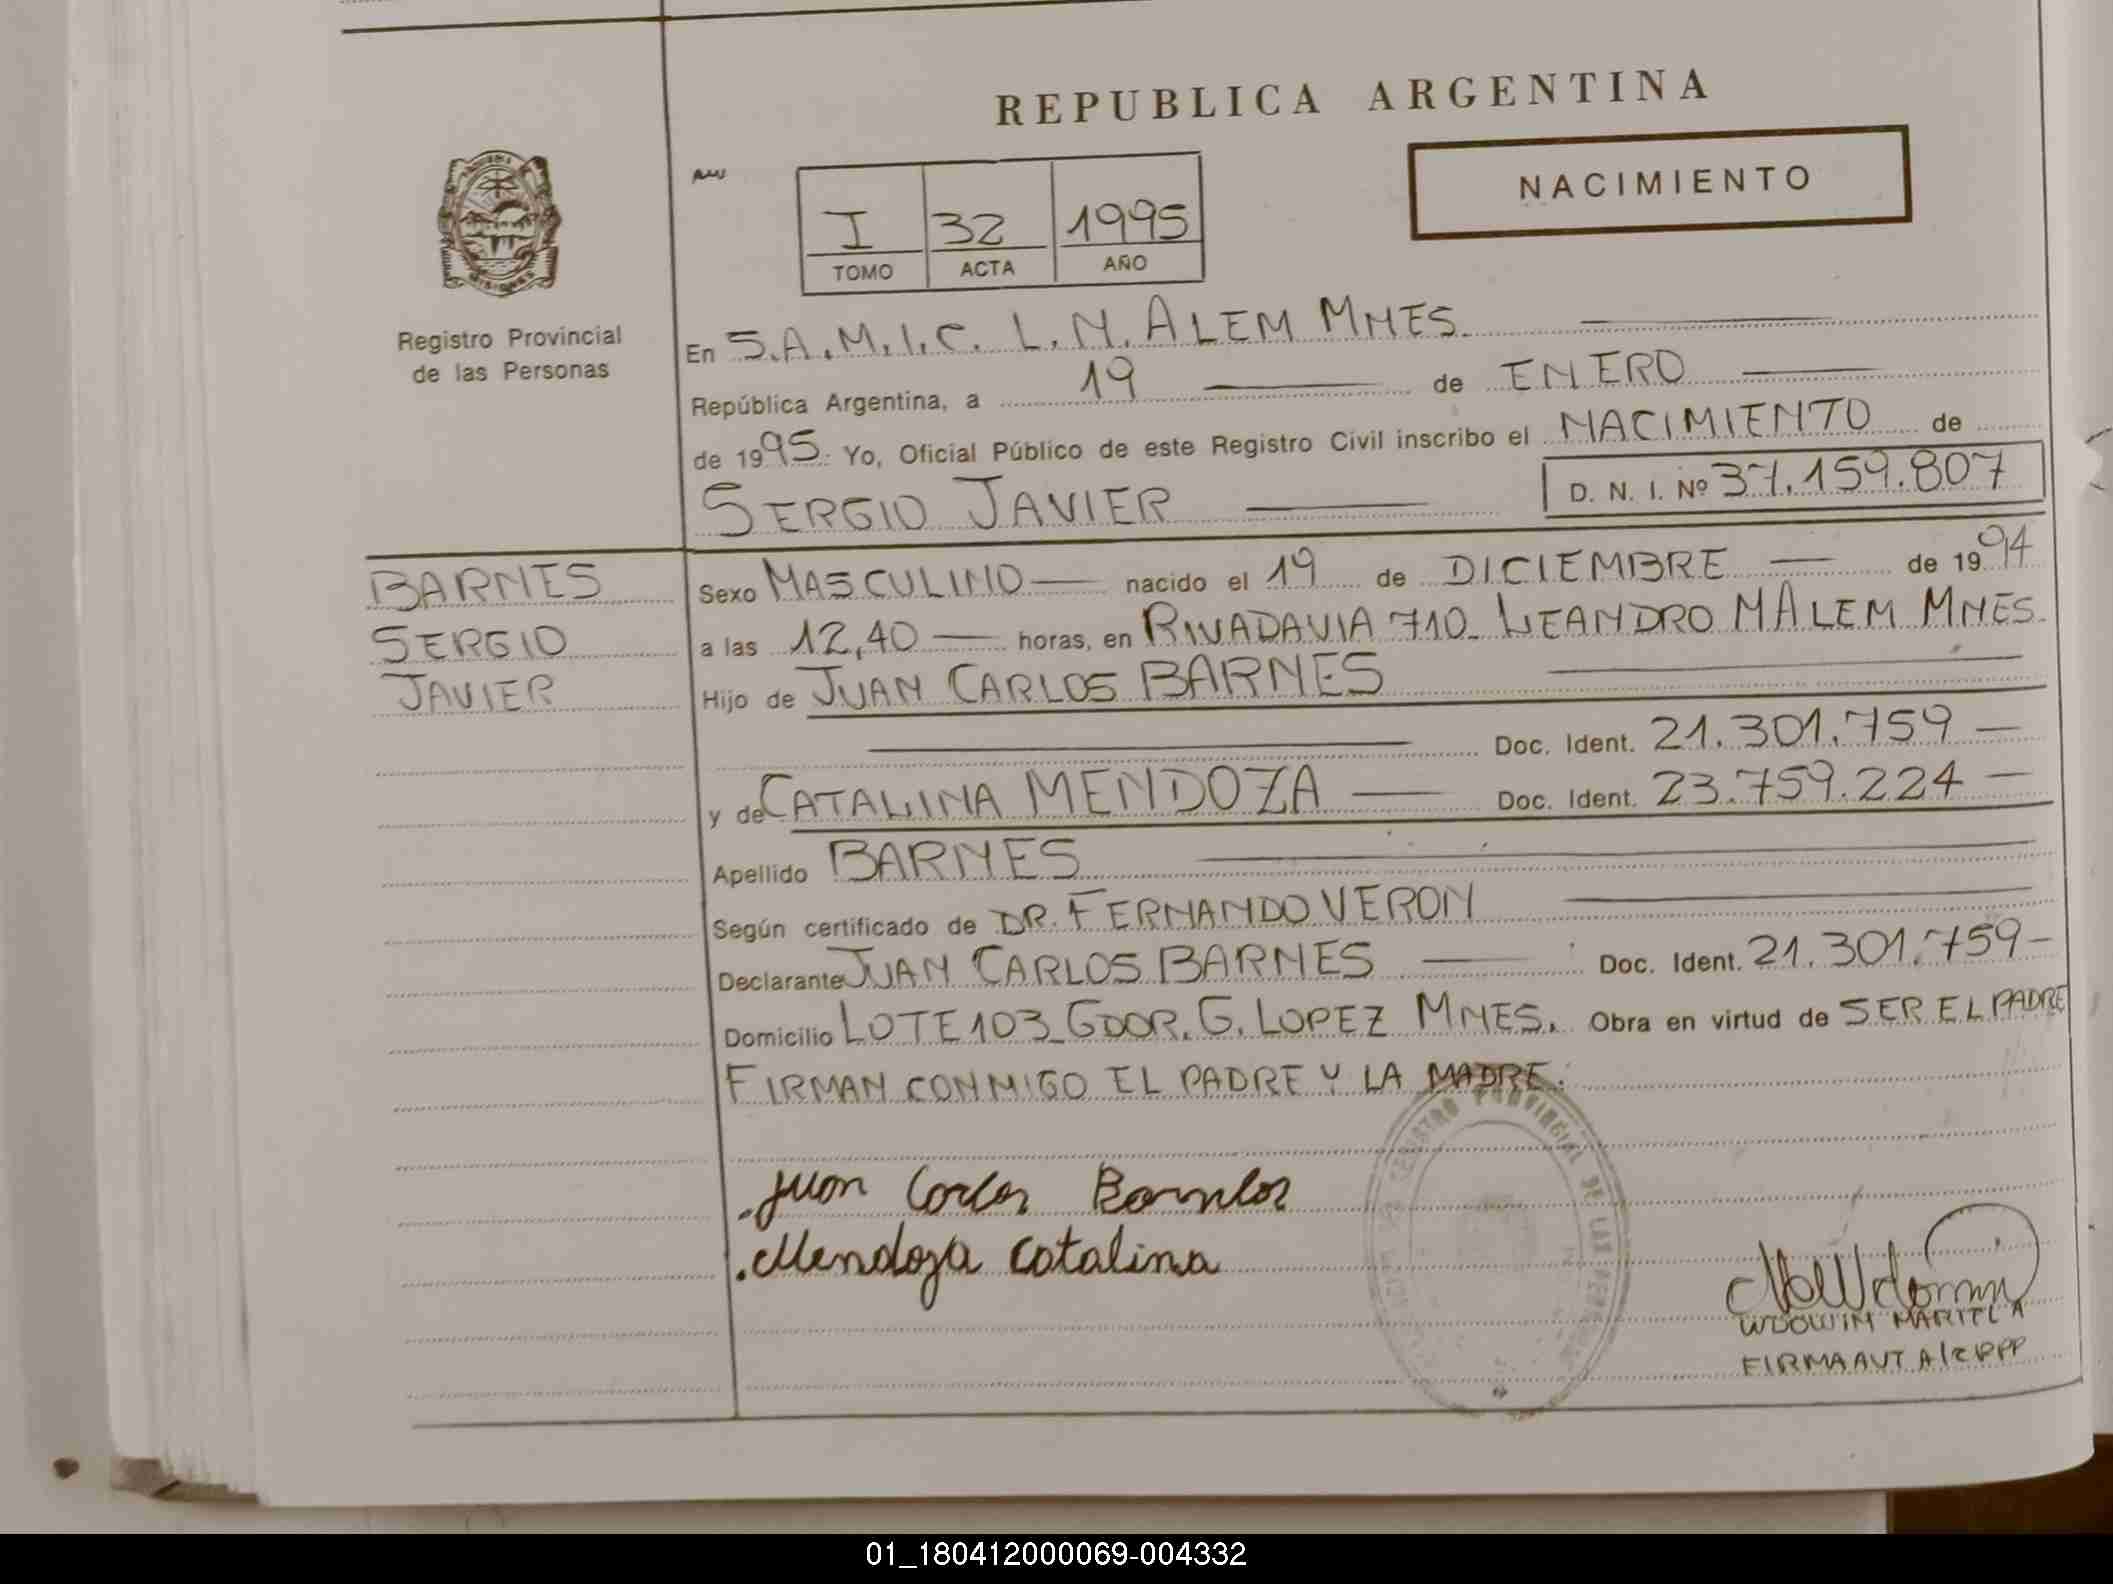 REPUBLICA ARGENTINA
NACIMIENTO
I 32 1995
TOMO ACTA AÑO
Registro Provincial
de las Personas
En S.A.M.I.C. L.N. ALEM MNES.
República Argentina, a 19 de ENERO
de 1995. Yo, Oficial Público de este Registro Civil inscribo el NACIMIENTO de
SERGIO JAVIER D. N. I. Nº 37.159.807
BARNES
SERGIO
JAVIER
Sexo MASCULINO nacido el 19 de DICIEMBRE de 1994
a las 12,40 horas, en RIVADAVIA 710_ LEANDRO N ALEM MNES.
Hijo de JUAN CARLOS BARNES
Doc. Ident. 21.301.759
y de CATALINA MENDOZA Doc. Ident. 23.759.224
Apellido BARNES
Según certificado de DR. FERNANDO VERON
Declarante JUAN CARLOS BARNES Doc. Ident. 21.301.759
Domicilio LOTE 103_ GDOR. G. LOPEZ MNES. Obra en virtud de SER EL PADRE
FIRMAN CONMIGO EL PADRE Y LA MADRE.
REGISTRO PROVINCIAL DE LAS PERSONAS
Juan Carlos
Mendoza Catalina
FIRMA AUT
01_180412000069-004332